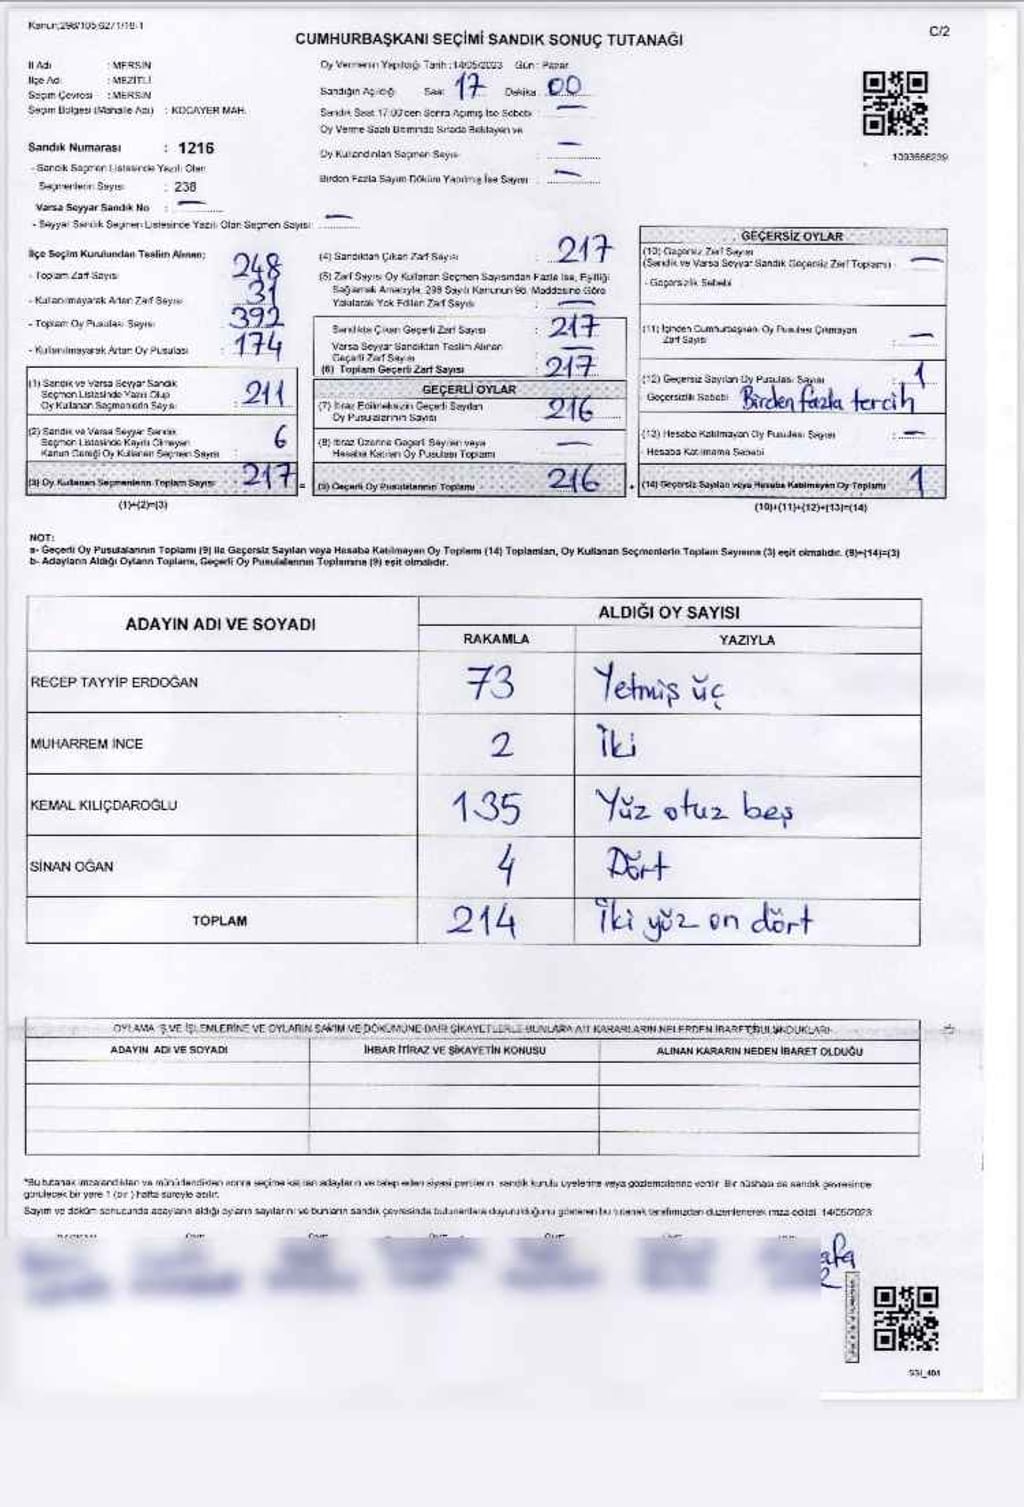 Kanun:298/105,6271/18-1
C/2
CUMHURBAŞKANI SEÇİMİ SANDIK SONUÇ TUTANAĞI
İl Adı : MERSİN
İlçe Adı : MEZİTLİ
Seçim Çevresi : MERSİN
Seçim Bölgesi (Mahalle Adı) : KOCAYER MAH.
Sandık Numarası : 1216
- Sandık Seçmen Listesinde Yazılı Olan
Seçmenlerin Sayısı : 238
Varsa Seyyar Sandık No : —
- Seyyar Sandık Seçmen Listesinde Yazılı Olan Seçmen Sayısı: —
Oy Vermenin Yapıldığı Tarih : 14/05/2023 Gün : Pazar
Sandığın Açıldığı Saat 17 Dakika 00
Sandık Saat 17:00'den Sonra Açılmış İse Sebebi : —
Oy Verme Saati Bitiminde Sırada Bekleyen ve
Oy Kullandırılan Seçmen Sayısı : —
Birden Fazla Sayım Döküm Yapılmış İse Sayısı : —
1093566239
İlçe Seçim Kurulundan Teslim Alınan;
- Toplam Zarf Sayısı : 248
- Kullanılmayarak Artan Zarf Sayısı : 31
- Toplam Oy Pusulası Sayısı : 392
- Kullanılmayarak Artan Oy Pusulası : 174
(1) Sandık ve Varsa Seyyar Sandık
Seçmen Listesinde Yazılı Olup
Oy Kullanan Seçmenlerin Sayısı : 211
(2) Sandık ve Varsa Seyyar Sandık
Seçmen Listesinde Kayıtlı Olmayan
Kanun Gereği Oy Kullanan Seçmen Sayısı : 6
(3) Oy Kullanan Seçmenlerin Toplam Sayısı : 217 =
(1)+(2)=(3)
(4) Sandıktan Çıkan Zarf Sayısı : 217
(5) Zarf Sayısı Oy Kullanan Seçmen Sayısından Fazla İse, Eşitliği
Sağlamak Amacıyla, 298 Sayılı Kanunun 98. Maddesine Göre
Yakılarak Yok Edilen Zarf Sayısı : —
Sandıkta Çıkan Geçerli Zarf Sayısı : 217
Varsa Seyyar Sandıktan Teslim Alınan
Geçerli Zarf Sayısı : —
(6) Toplam Geçerli Zarf Sayısı : 217
GEÇERLİ OYLAR
(7) İtiraz Edilmeksizin Geçerli Sayılan
Oy Pusulalarının Sayısı : 216
(8) İtiraz Üzerine Geçerli Sayılan veya
Hesaba Katılan Oy Pusulası Toplamı : —
(9) Geçerli Oy Pusulalarının Toplamı : 216 +
GEÇERSİZ OYLAR
(10) Geçersiz Zarf Sayısı
(Sandık ve Varsa Seyyar Sandık Geçersiz Zarf Toplamı) : —
- Geçersizlik Sebebi
(11) İçinden Cumhurbaşkanı Oy Pusulası Çıkmayan
Zarf Sayısı : —
(12) Geçersiz Sayılan Oy Pusulası Sayısı : 1
Geçersizlik Sebebi Birden fazla tercih
(13) Hesaba Katılmayan Oy Pusulası Sayısı : —
- Hesaba Katılmama Sebebi
(14) Geçersiz Sayılan veya Hesaba Katılmayan Oy Toplamı 1
(10)+(11)+(12)+(13)=(14)
NOT:
a- Geçerli Oy Pusulalarının Toplamı (9) ile Geçersiz Sayılan veya Hesaba Katılmayan Oy Toplamı (14) Toplamları, Oy Kullanan Seçmenlerin Toplam Sayısına (3) eşit olmalıdır. (9)+(14)=(3)
b- Adayların Aldığı Oyların Toplamı, Geçerli Oy Pusulalarının Toplamına (9) eşit olmalıdır.
ADAYIN ADI VE SOYADI
ALDIĞI OY SAYISI
RAKAMLA YAZIYLA
RECEP TAYYİP ERDOĞAN 73 Yetmiş üç
MUHARREM İNCE 2 İki
KEMAL KILIÇDAROĞLU 135 Yüz otuz beş
SİNAN OĞAN 4 Dört
TOPLAM 214 İki yüz on dört
OYLAMA İŞ VE İŞLEMLERİNE VE OYLARIN SAYIM VE DÖKÜMÜNE DAİR ŞİKAYETLERLE BUNLARA AİT KARARLARIN NELERDEN İBARET BULUNDUKLARI
ADAYIN ADI VE SOYADI İHBAR İTİRAZ VE ŞİKAYETİN KONUSU ALINAN KARARIN NEDEN İBARET OLDUĞU
*Bu tutanak imzalandıktan ve mühürlendikten sonra seçime katılan adayların ve talep eden siyasi partilerin, sandık kurulu üyelerine veya gözlemcilerine verilir. Bir nüshası da sandık çevresinde
görülecek bir yere 1 (bir) hafta süreyle asılır.
Sayım ve döküm sonucunda adayların aldığı oyların sayılarını ve bunların sandık çevresinde bulunanlara duyurulduğunu gösteren bu tutanak tarafımızdan düzenlenerek imza edildi. 14/05/2023